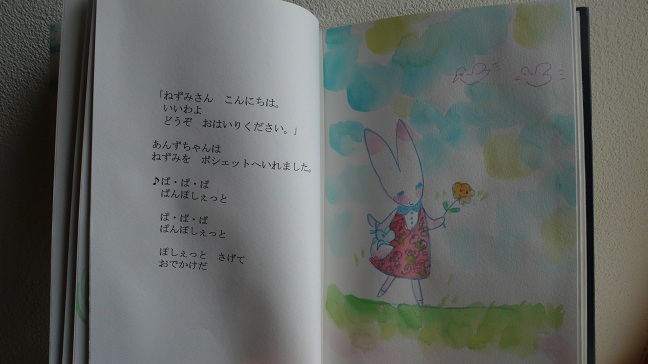 「ねずみさん　こんにちは。
いいわよ
どうぞ　おはいりください。」
あんずちゃんは
ねずみを　ポシェットへいれました。
♪ぱ・ぱ・ぱ
ぱんぽしぇっと
ぱ・ぱ・ぱ
ぱんぽしぇっと
ぽしぇっと　さげて
おでかけだ